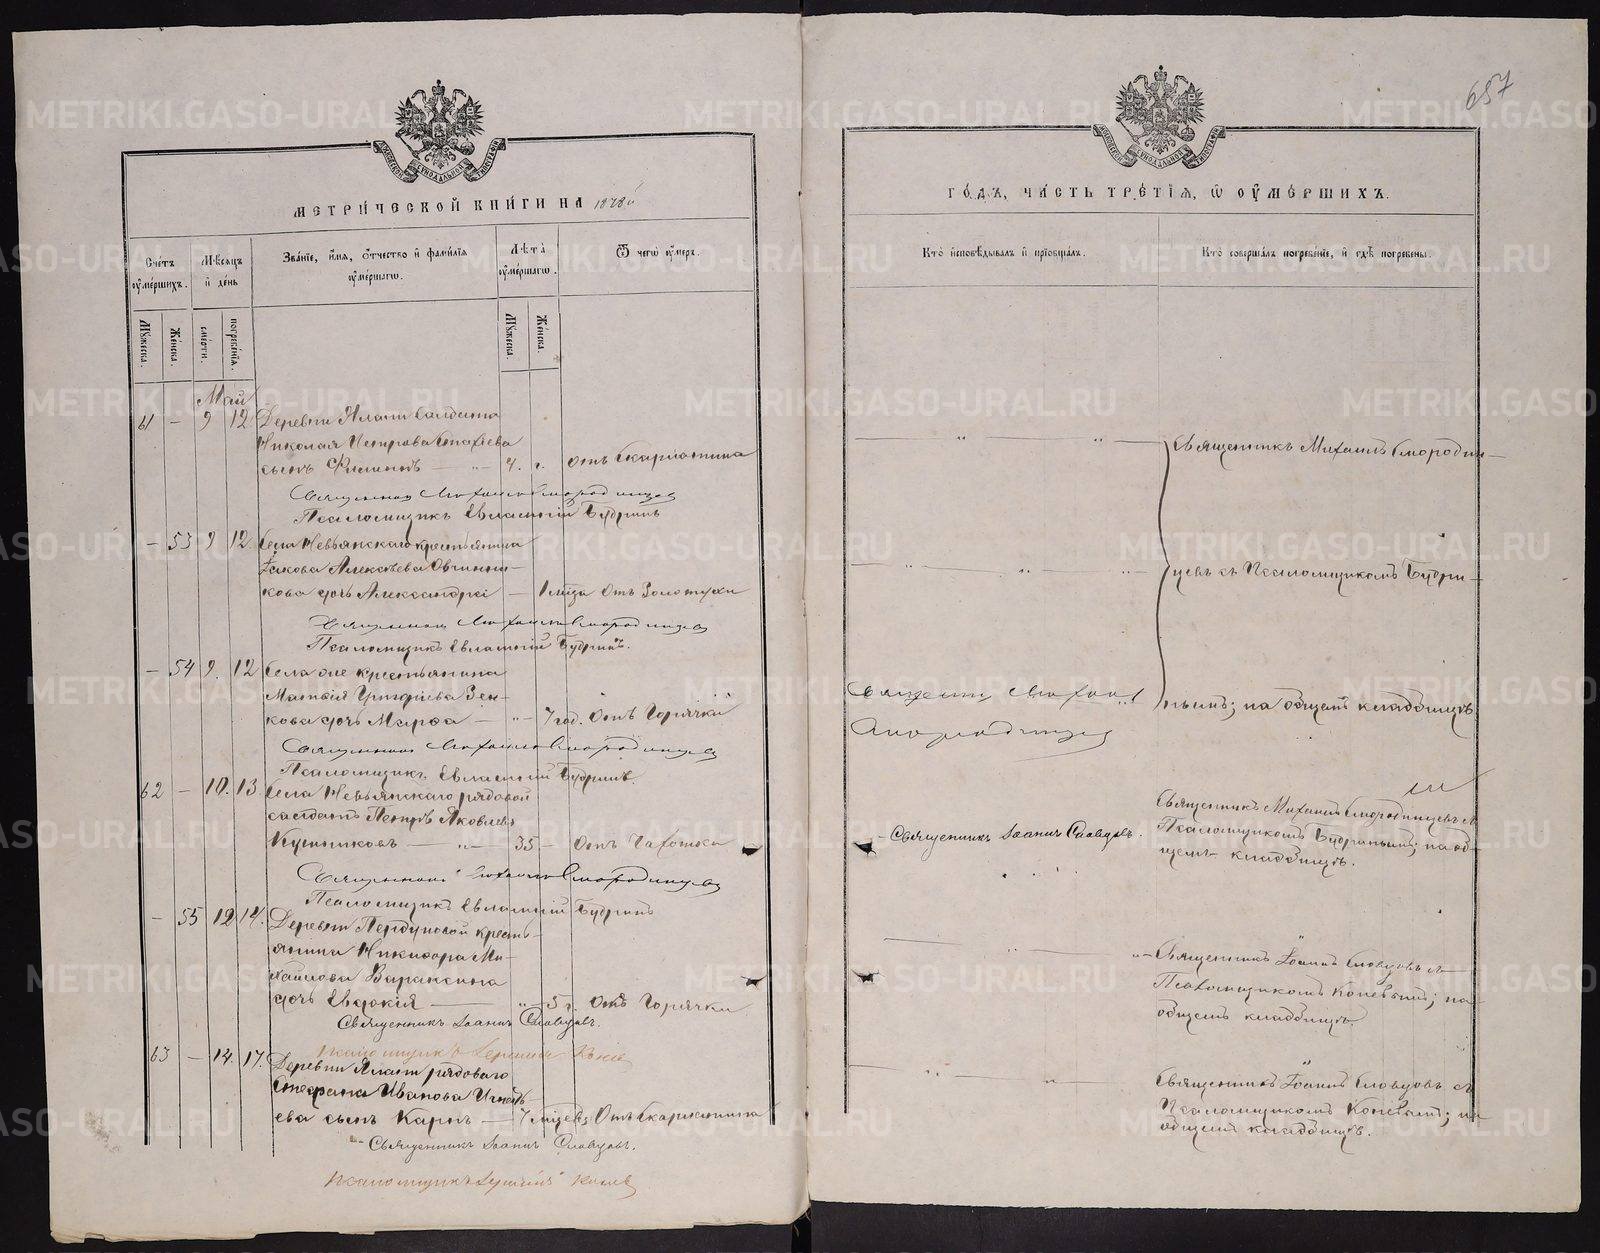 657
МЕТРИ́ЧЕСКОЙ КНИ́ГИ НА 1878й
Сче́тъ ᲂу҆ме́ршихъ.
Мѣ́сѧцъ и҆ де́нь
Зва́нїе, и҆́мѧ, ѻ҆́тчество и҆ фами́лїѧ ᲂу҆ме́ршагѡ.
Лѣ́та ᲂу҆ме́ршагѡ.
Ѿ чегѡ̀ ᲂу҆́меръ.
Мꙋ́жеска.
Же́нска.
сме́рти.
погребе́нїѧ.
Мꙋ́жеска.
Же́нска.
Май
61 — 9 12 Деревни Ялани солдата
Николая Петрова Стахѣева
сынъ Филиппъ — 4. г. Отъ Скарлатина
Священникъ Михаилъ Смородинцевъ
Псаломщикъ Евлампій Будринъ
— 53 9 12. Села Невьянскаго крестьянина
Іакова Алексѣева Овчинни-
кова дочь Александра — 1 мѣсяца Отъ Золотухи
Священникъ Михаилъ Смородинцевъ
Псаломщикъ Евлампій Будринъ.
— 54 9. 12 Села оне крестьянина
Матвія Григоріева Зен-
кова дочь Марѳа — 7 год. Отъ Горячки
Священникъ Михаилъ Смородинцевъ
Псаломщикъ Евлампій Будринъ.
62 — 10. 13 Села Невьянскаго рядовой
солдатъ Петръ Яковлевъ
35 — Отъ Чахотка
Священникъ Михаилъ Смородинцевъ
Псаломщикъ Евлампій Будринъ
— 55 12 14. Деревни Пердуновой кресть-
янина Никифора Ми-
хайлова Вараксина
дочь Евдокія — 5 г. Отъ Горячки
Священникъ Іоаннъ Словцовъ.
Псаломщикъ
63 — 14. 17. Деревни Ялани рядоваго
Стефана Иванова Игнать-
ева сынъ Карпъ — 7 мѣсяцевъ Отъ Скарлатина
Священникъ Іоаннъ Словцовъ.
Псаломщикъ
ГО́ДЪ, ЧА́СТЬ ТРЕ́ТЇѦ, Ѡ҆ ОУ҆МЕ́РШИХЪ.
Кто̀ и҆сповѣ́дывалъ и҆ прїѡбща́лъ.
Кто̀ соверша́лъ погребе́нїе, и҆ гдѣ̀ погребены̀.
Священникъ Михаилъ Смородин-
цевъ съ Псаломщикомъ Будри-
нымъ; на общемъ кладбищѣ
Священникъ Михаилъ
Смородинцевъ
Священникъ Іоаннъ Словцовъ.
Священникъ Михаилъ Смородинцевъ съ
Псаломщикомъ Будринымъ; на об-
щемъ кладбищѣ.
Священникъ Іоаннъ Словцовъ съ
Псаломщикомъ Коневымъ; на
общемъ кладбищѣ.
Священникъ Іоаннъ Словцовъ съ
Псаломщикомъ Коневымъ; на
общемъ кладбищѣ.
METRIKI.GASO-URAL.RU